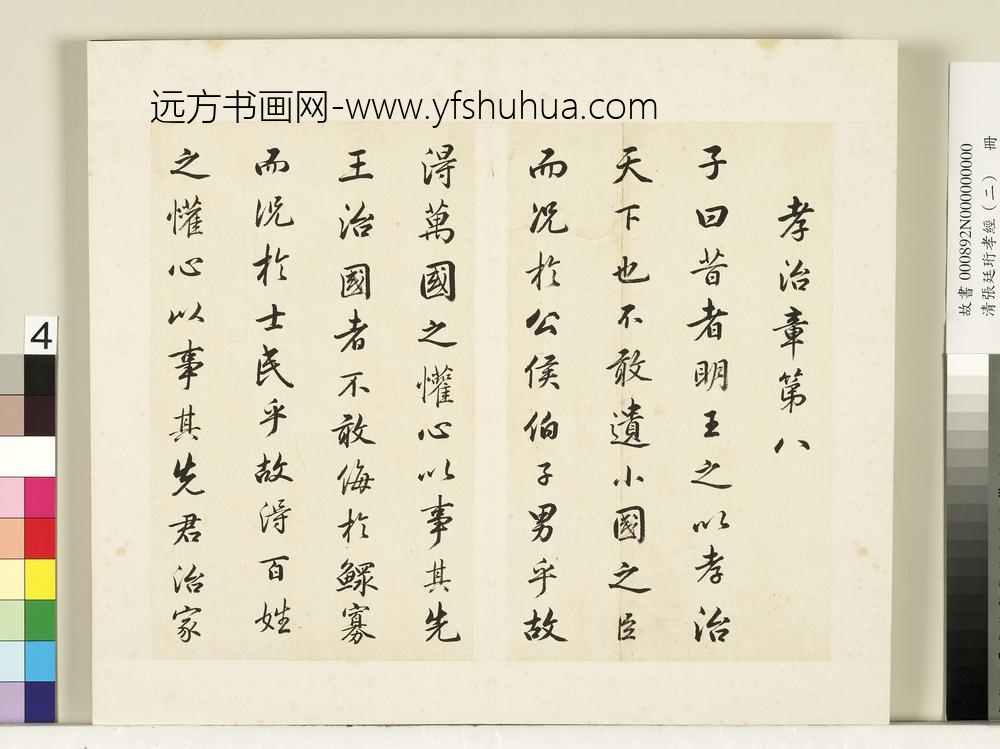 远方书画网-www.yfshuhua.com
孝治章第八
子曰昔者明王之以孝治
天下也不敢遺小國之臣
而況於公侯伯子男乎故
得萬國之懽心以事其先
王治國者不敢侮於鰥寡
而況於士民乎故得百姓
之懽心以事其先君治家
故書000892N000000000
清張廷珩孝經(二) 冊
4